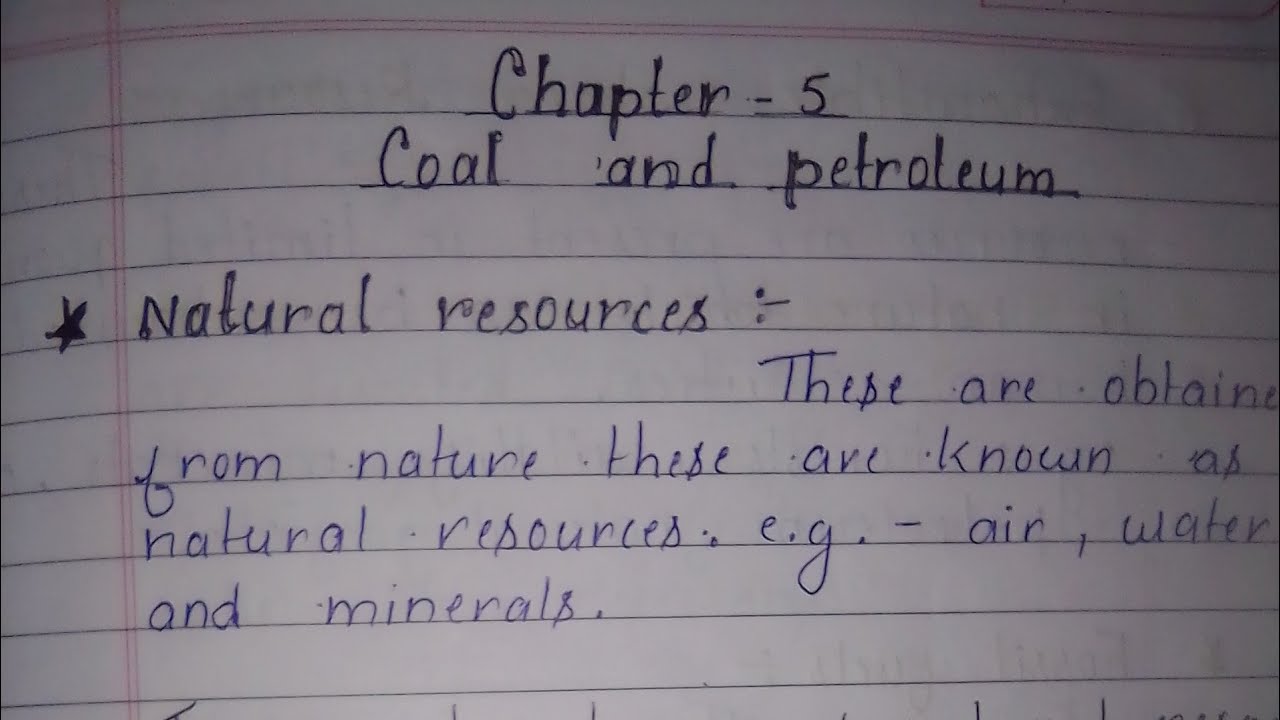 Chapter - 5
Coal and petroleum
★ Natural resources :-
These are obtaine
from nature these are known as
natural resources. e.g. - air, water
and minerals.